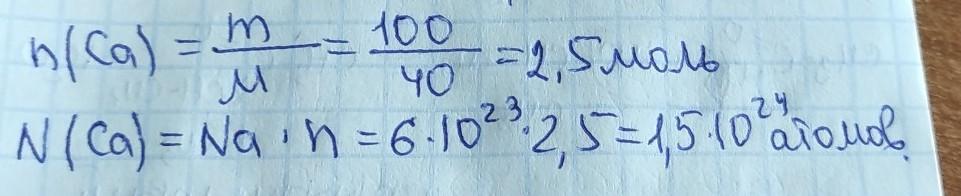 n(Ca) = m/M = 100/40 = 2,5 моль
N(Ca) = Na · n = 6·10²³·2,5 = 1,5·10²⁴ атомов.